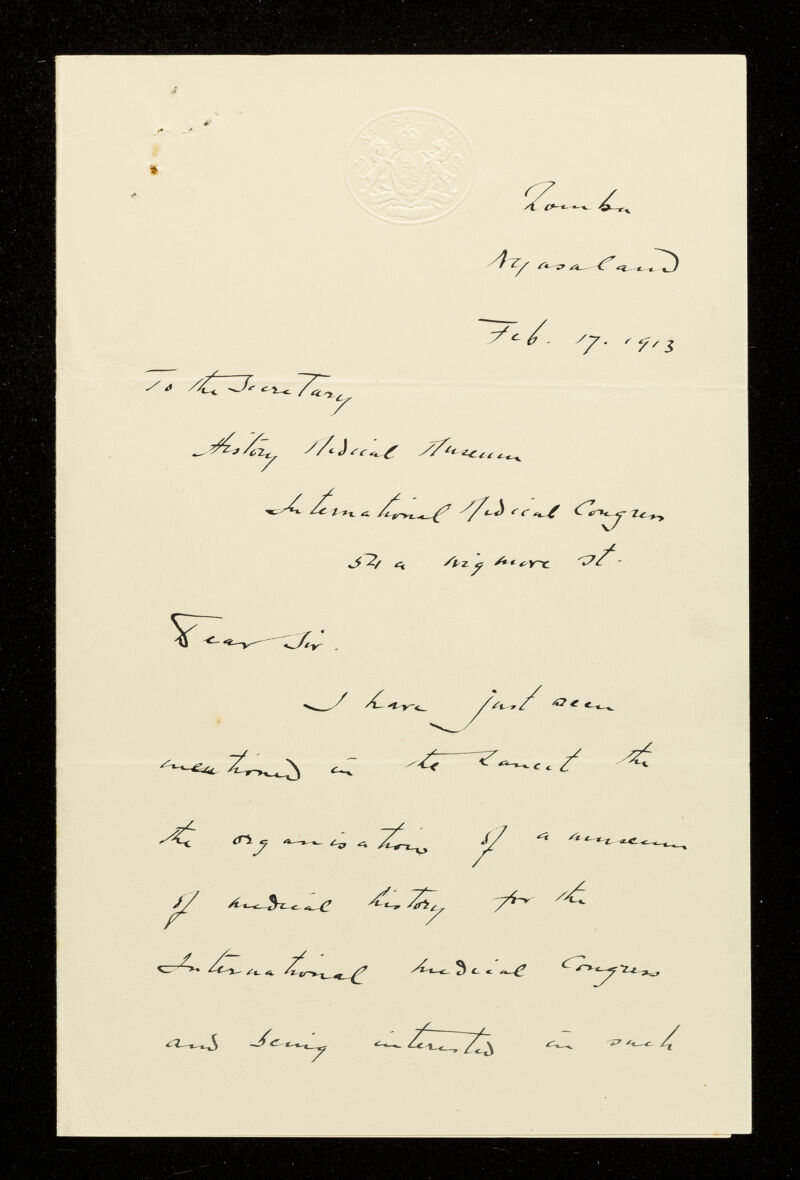 NYASALAND
Zomba
Nyasaland
Feb. 17. 1913
To the Secretary
History Medical Museum
International Medical Congress
54 a wigmore st.
Dear Sir.
I have just seen
mentioned in the Lancet the
the organisation of a museum
of medical history for the
International medical Congress
and being interested in such